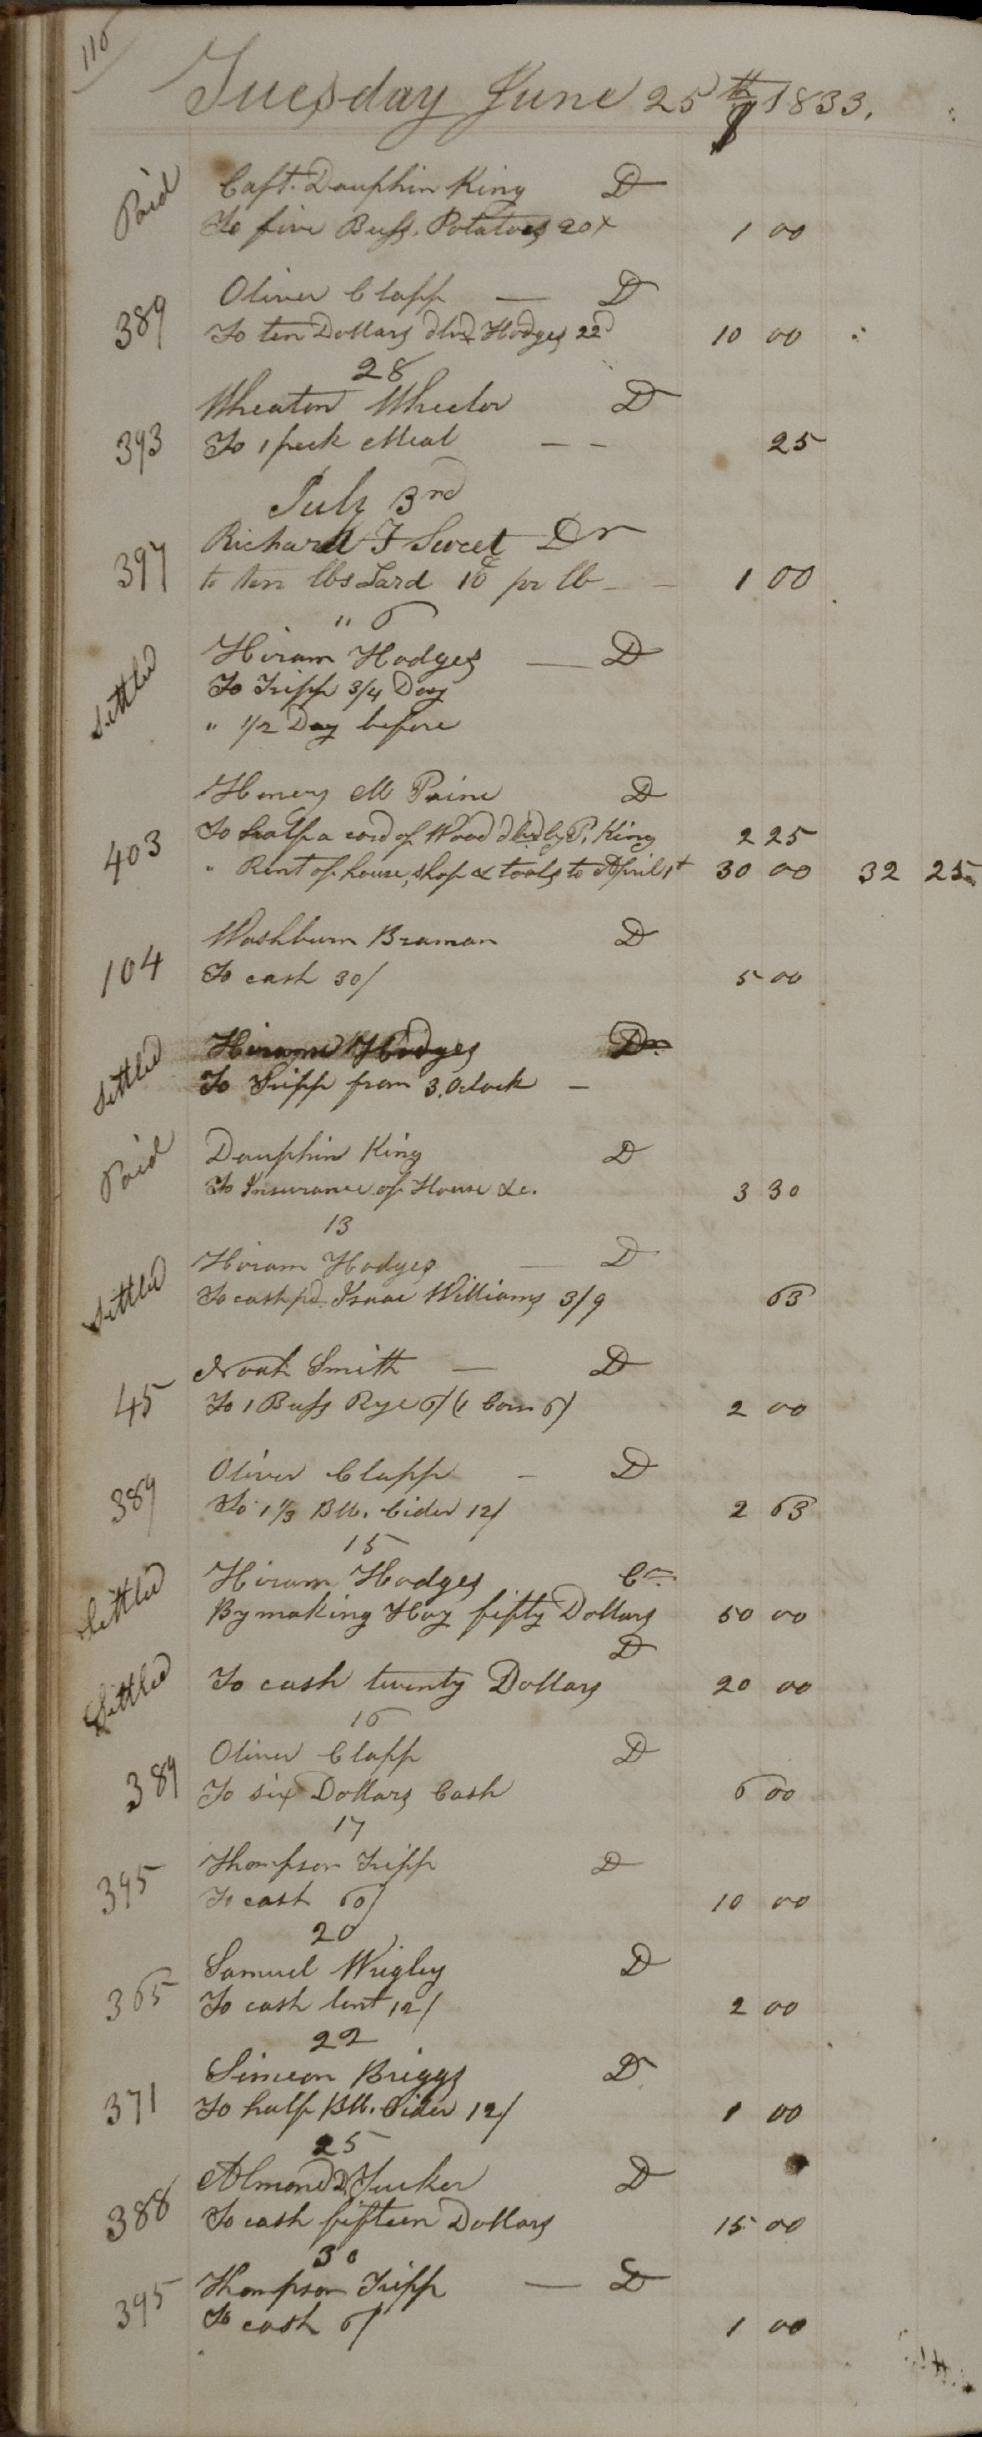 116
Tuesday June 25th 1833.
Paid Capt. Dauphin King D
To five Bush. Potatoes 20 1 00
389 Oliver Clapp — D
To ten Dollars dlvd Hodges 22d 10 00
28
393 Wheaton Wheelor D
To 1 peck Meal — — 25
July 3rd
397 Richard F Sweet Dr
to ten lbs Lard 10c pr lb — — 1 00
" 6
Settled Hiram Hodges — D
To Tripp 3/4 Day
" 1/2 Day before
403 Henery M Paine D
To half a cord of Wood dlvd by P. King 2 25
" Rent of house, shop & tools to April 1st 30 00 32 25
104 Washburn Braman D
To cash 30/ 5 00
Settled Hiram Hodges Dr
To Tripp from 3, Oclock —
Paid Dauphin King D
To Insurance of House &c. 3 30
13
Settled Hiram Hodges — D
To cash pd. Isaac Williams 3/9 63
45 Noah Smith — D
To 1 Bush Rye 6/ 1 Corn 6/ 2 00
389 Oliver Clapp — D
To 1 1/3 Bbl. Cider 12/ 2 63
15
Settled Hiram Hodges Cr
By making Hay fifty Dollars 50 00
D
Settled To cash twenty Dollars 20 00
16
389 Oliver Clapp D
To six Dollars Cash 6 00
17
395 Thompson Tripp D
To cash 60/ 10 00
20
365 Samuel Wrigley D
To cash lent 12/ 2 00
22
371 Simeon Briggs D
To half Bbl. Cider 12/ 1 00
25
388 Almond D. Tucker D
To cash fifteen Dollars 15 00
30
395 Thompson Tripp — D
To cash 6/ 1 00